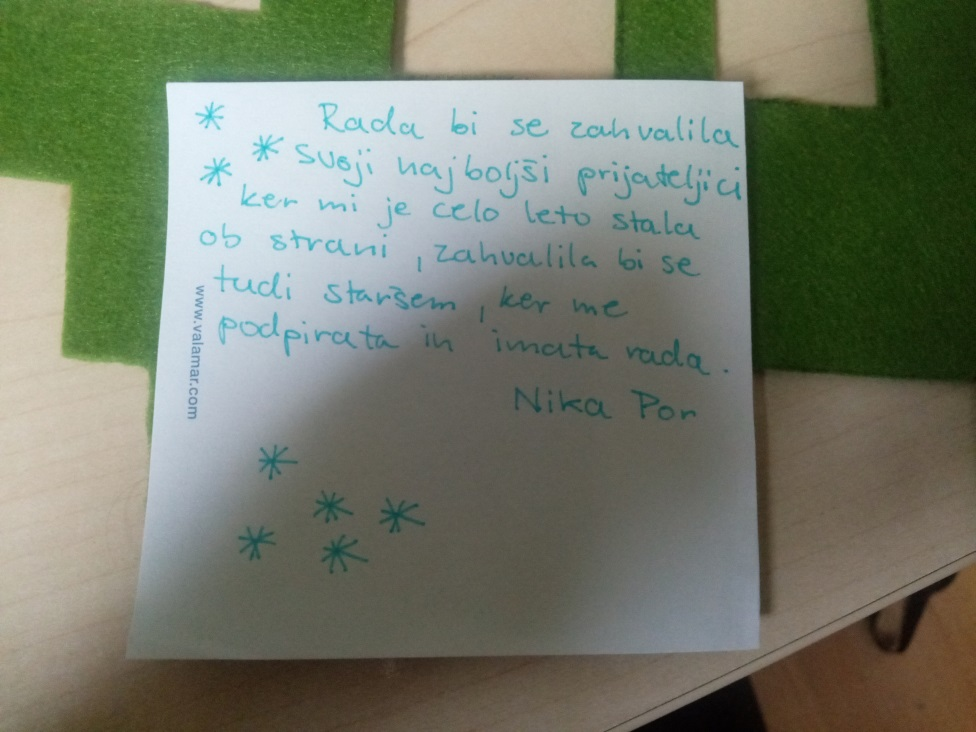 Rada bi se zahvalila
svoji najboljši prijateljici
ker mi je celo leto stala
ob strani, zahvalila bi se
tudi staršem, ker me
podpirata in imata rada.
Nika Por
www.valamar.com